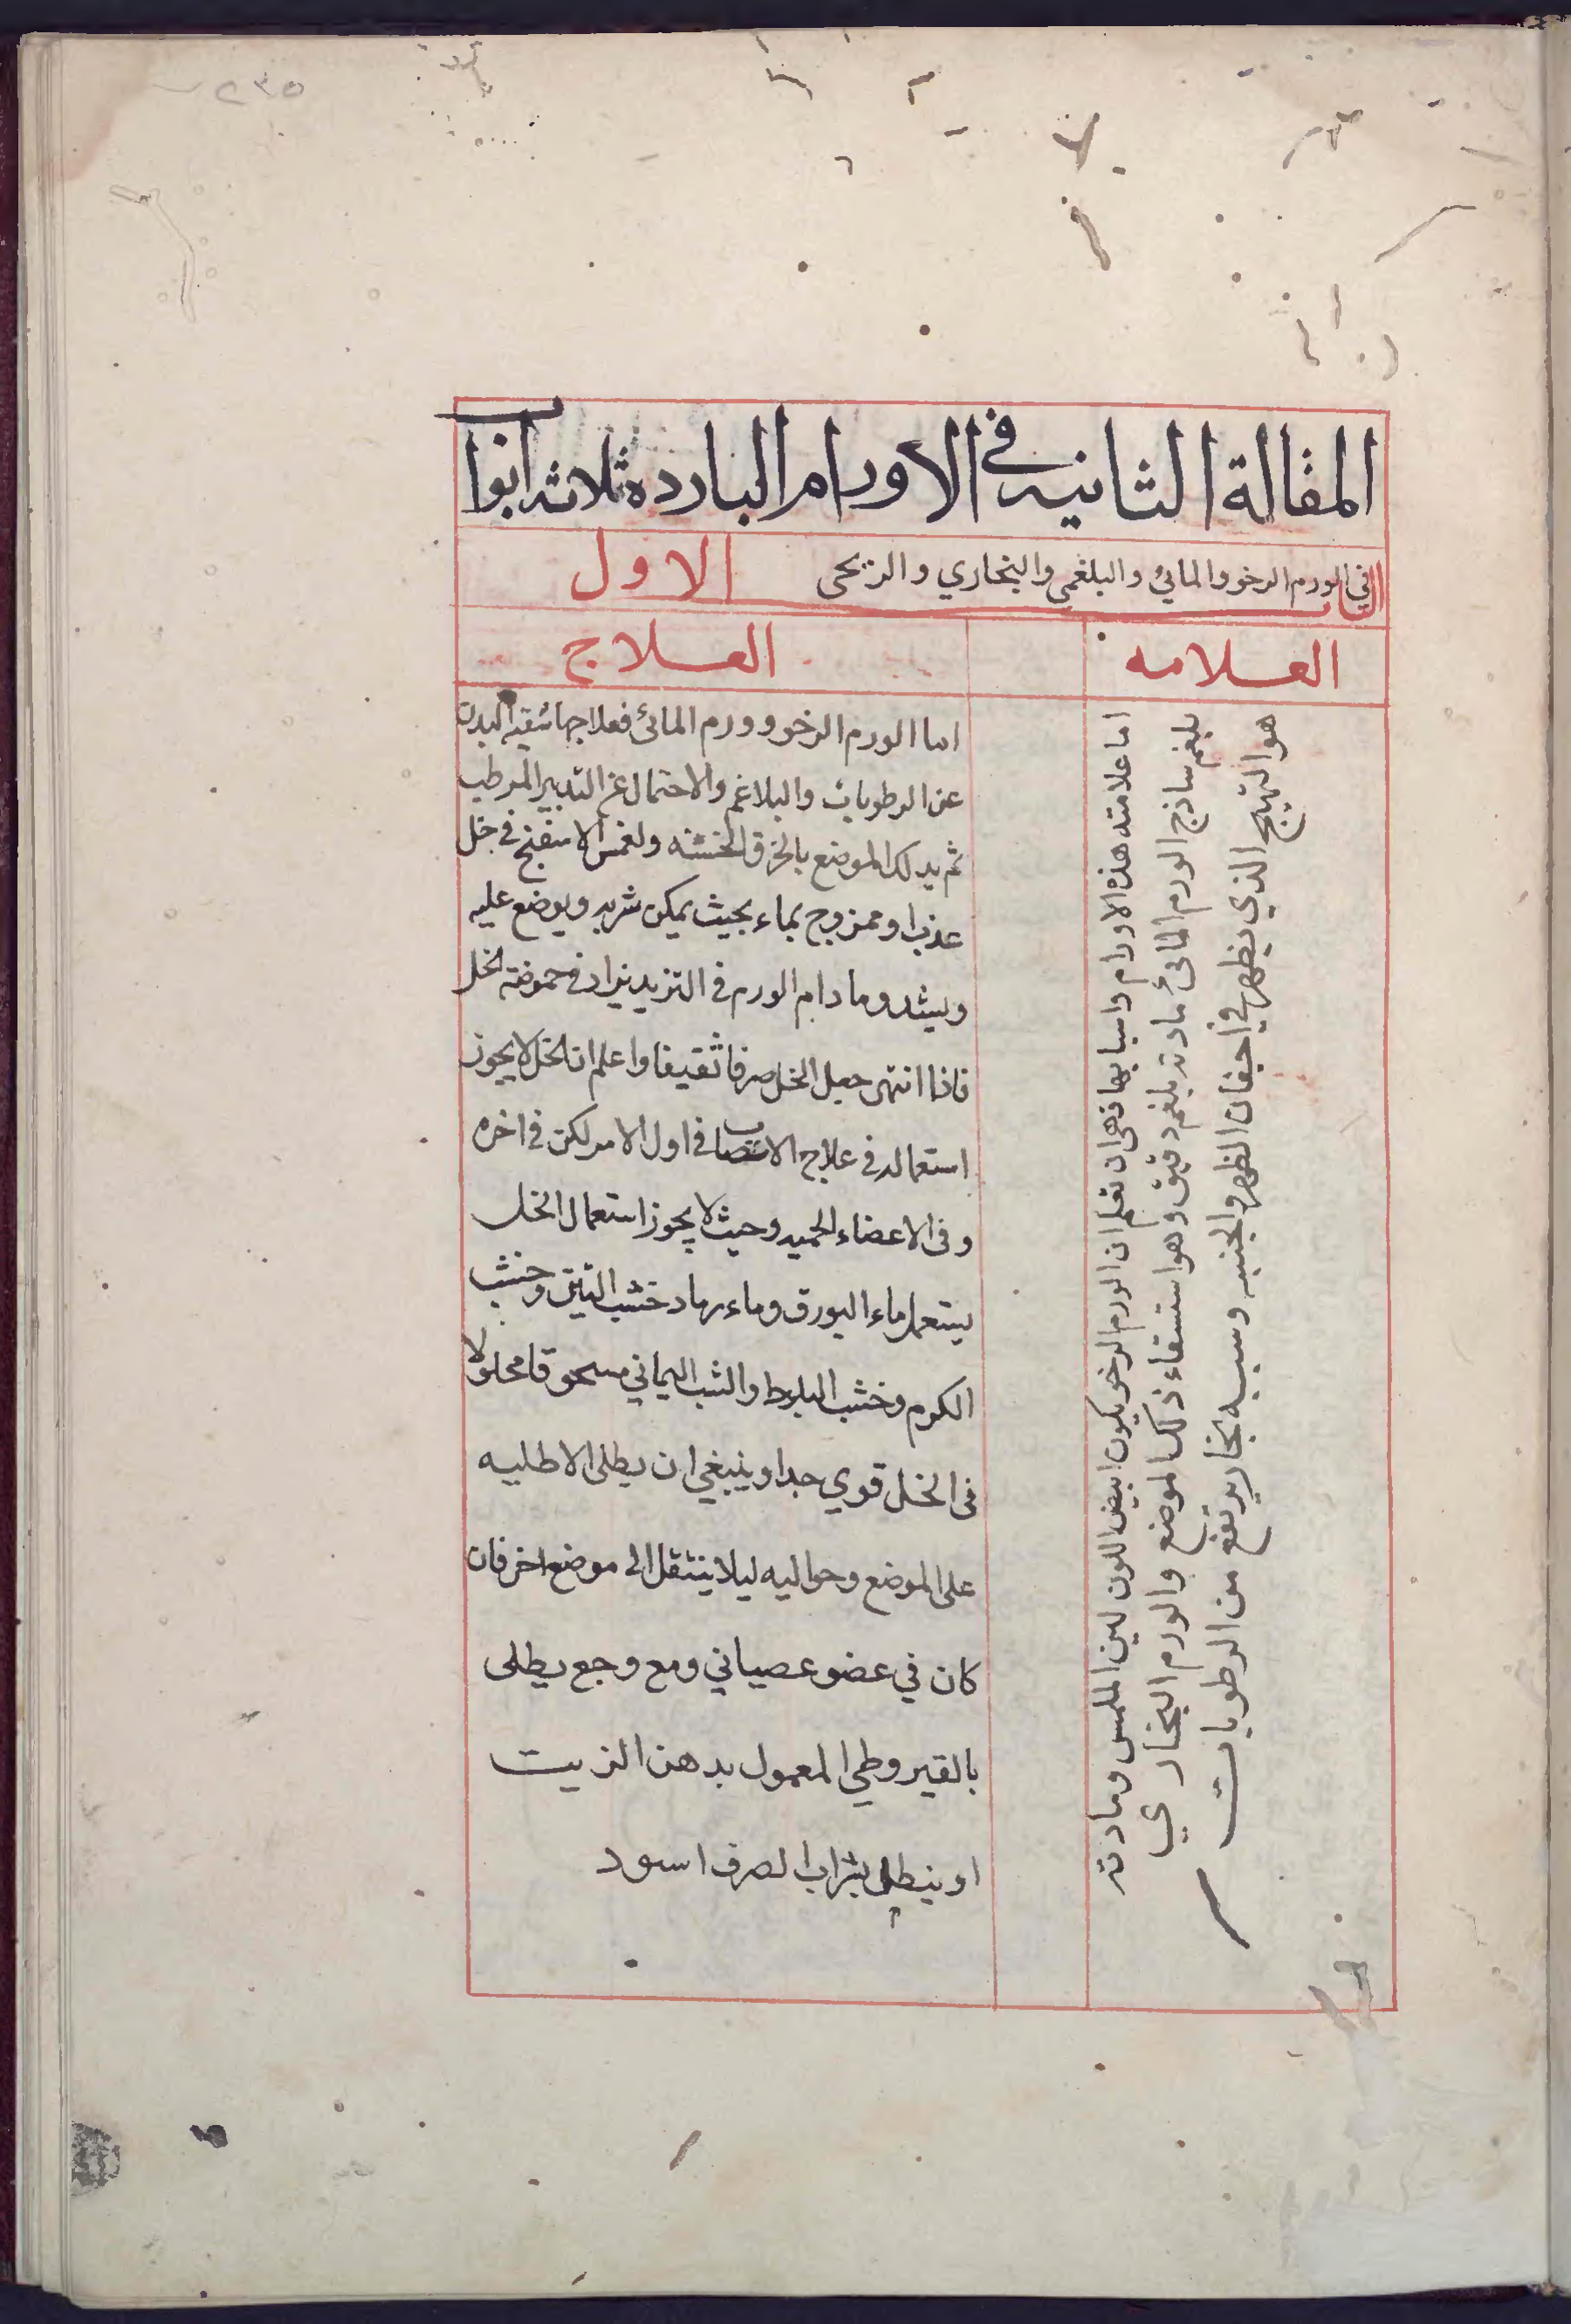 ٢٣٥
المقالة الثانيه في الاورام البارده ثلاثه ابواب
الباب الاول
في الورم الرخو والمائي والبلغمي والبخاري والريحي
العلامه
العلاج
اما علامته هذه الاورام واسبابها فهي ان تعلم ان الورم الرخو يكون ابيض اللون لين الملمس ومادته
بلغم ساذج الورم المائي مادته بلغم دقيق وهو استسقاء ذلك الموضع والورم البخاري
هو التهيج الذي يظهر في اجفان الظهر والجنبه وسببه بخار يرتفع من الرطوبات
اما الورم الرخو وورم المائى فعلاجها تنقيه البدن
عن الرطوبات والبلاغم والاحتمال عن التدبير المرطب
ثم يدلك الموضع بالخرق الخشنه ولغمس الاسفنج في خل
عذب او ممزوج بماء بحيث يمكن شربه ويوضع عليه
ويشد وما دام الورم في التزيد يزاد في حموضة الخل
فاذا انتهى جعل الخل صرفا ثقيفا واعلم ان الخل لا يجوز
استعماله في علاج الاعصاب في اول الامر لكن في اخره
وفى الاعضاء الحميه وحيث لا يجوز استعمال الخل
يستعمل ماء البورق وماء رماد خشب التين وخشب
الكرم وخشب البلوط والشب اليماني مسحوقا محلولا
فى الخل قوي جدا وينبغي ان يطلى الاطليه
على الموضع وحواليه ليلا ينتقل الى موضع اخر فان
كان في عضو عصباني ومع وجع يطلى
بالقيروطي المعمول بدهن الزيت
او ينطل بشراب الصرف اسود